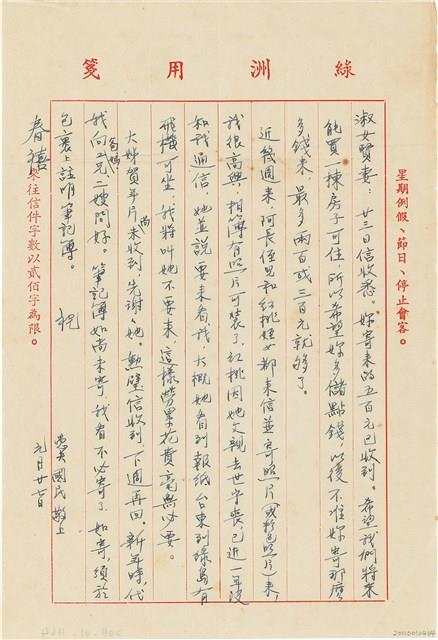 綠洲用箋
星期例假、節日、停止會客。
淑女賢妻：廿三日信收悉。妳寄來的五百元已收到。希望我們將來
能買一棟房子可住，所以希望妳多儲點錢，以後不准妳寄那麼
多錢來，最多兩百或三百元就夠了。
近幾週來，阿長侄兒和紅桃姪女都來信並寄照片(或彩色照片)來，
我很高興，相簿有照片可裝了，紅桃因她父親去世守喪，已近一年沒
和我通信，她並說要來看我，大概她看到報紙台東到綠島有
飛機可坐，我將叫她不要來，這樣勞累花費毫無必要。
大姊賀年片尚未收到，先謝謝她。勳隆信收到，下週再回。新年時，代
我向爸媽、二兄、二嫂問好。筆記簿如尚未寄，我看不必寄了，如寄，須於
包裹上註明筆記簿。 祝
春禧
國民 敬上
元月廿七日
來往信件字數以貳佰字為限。